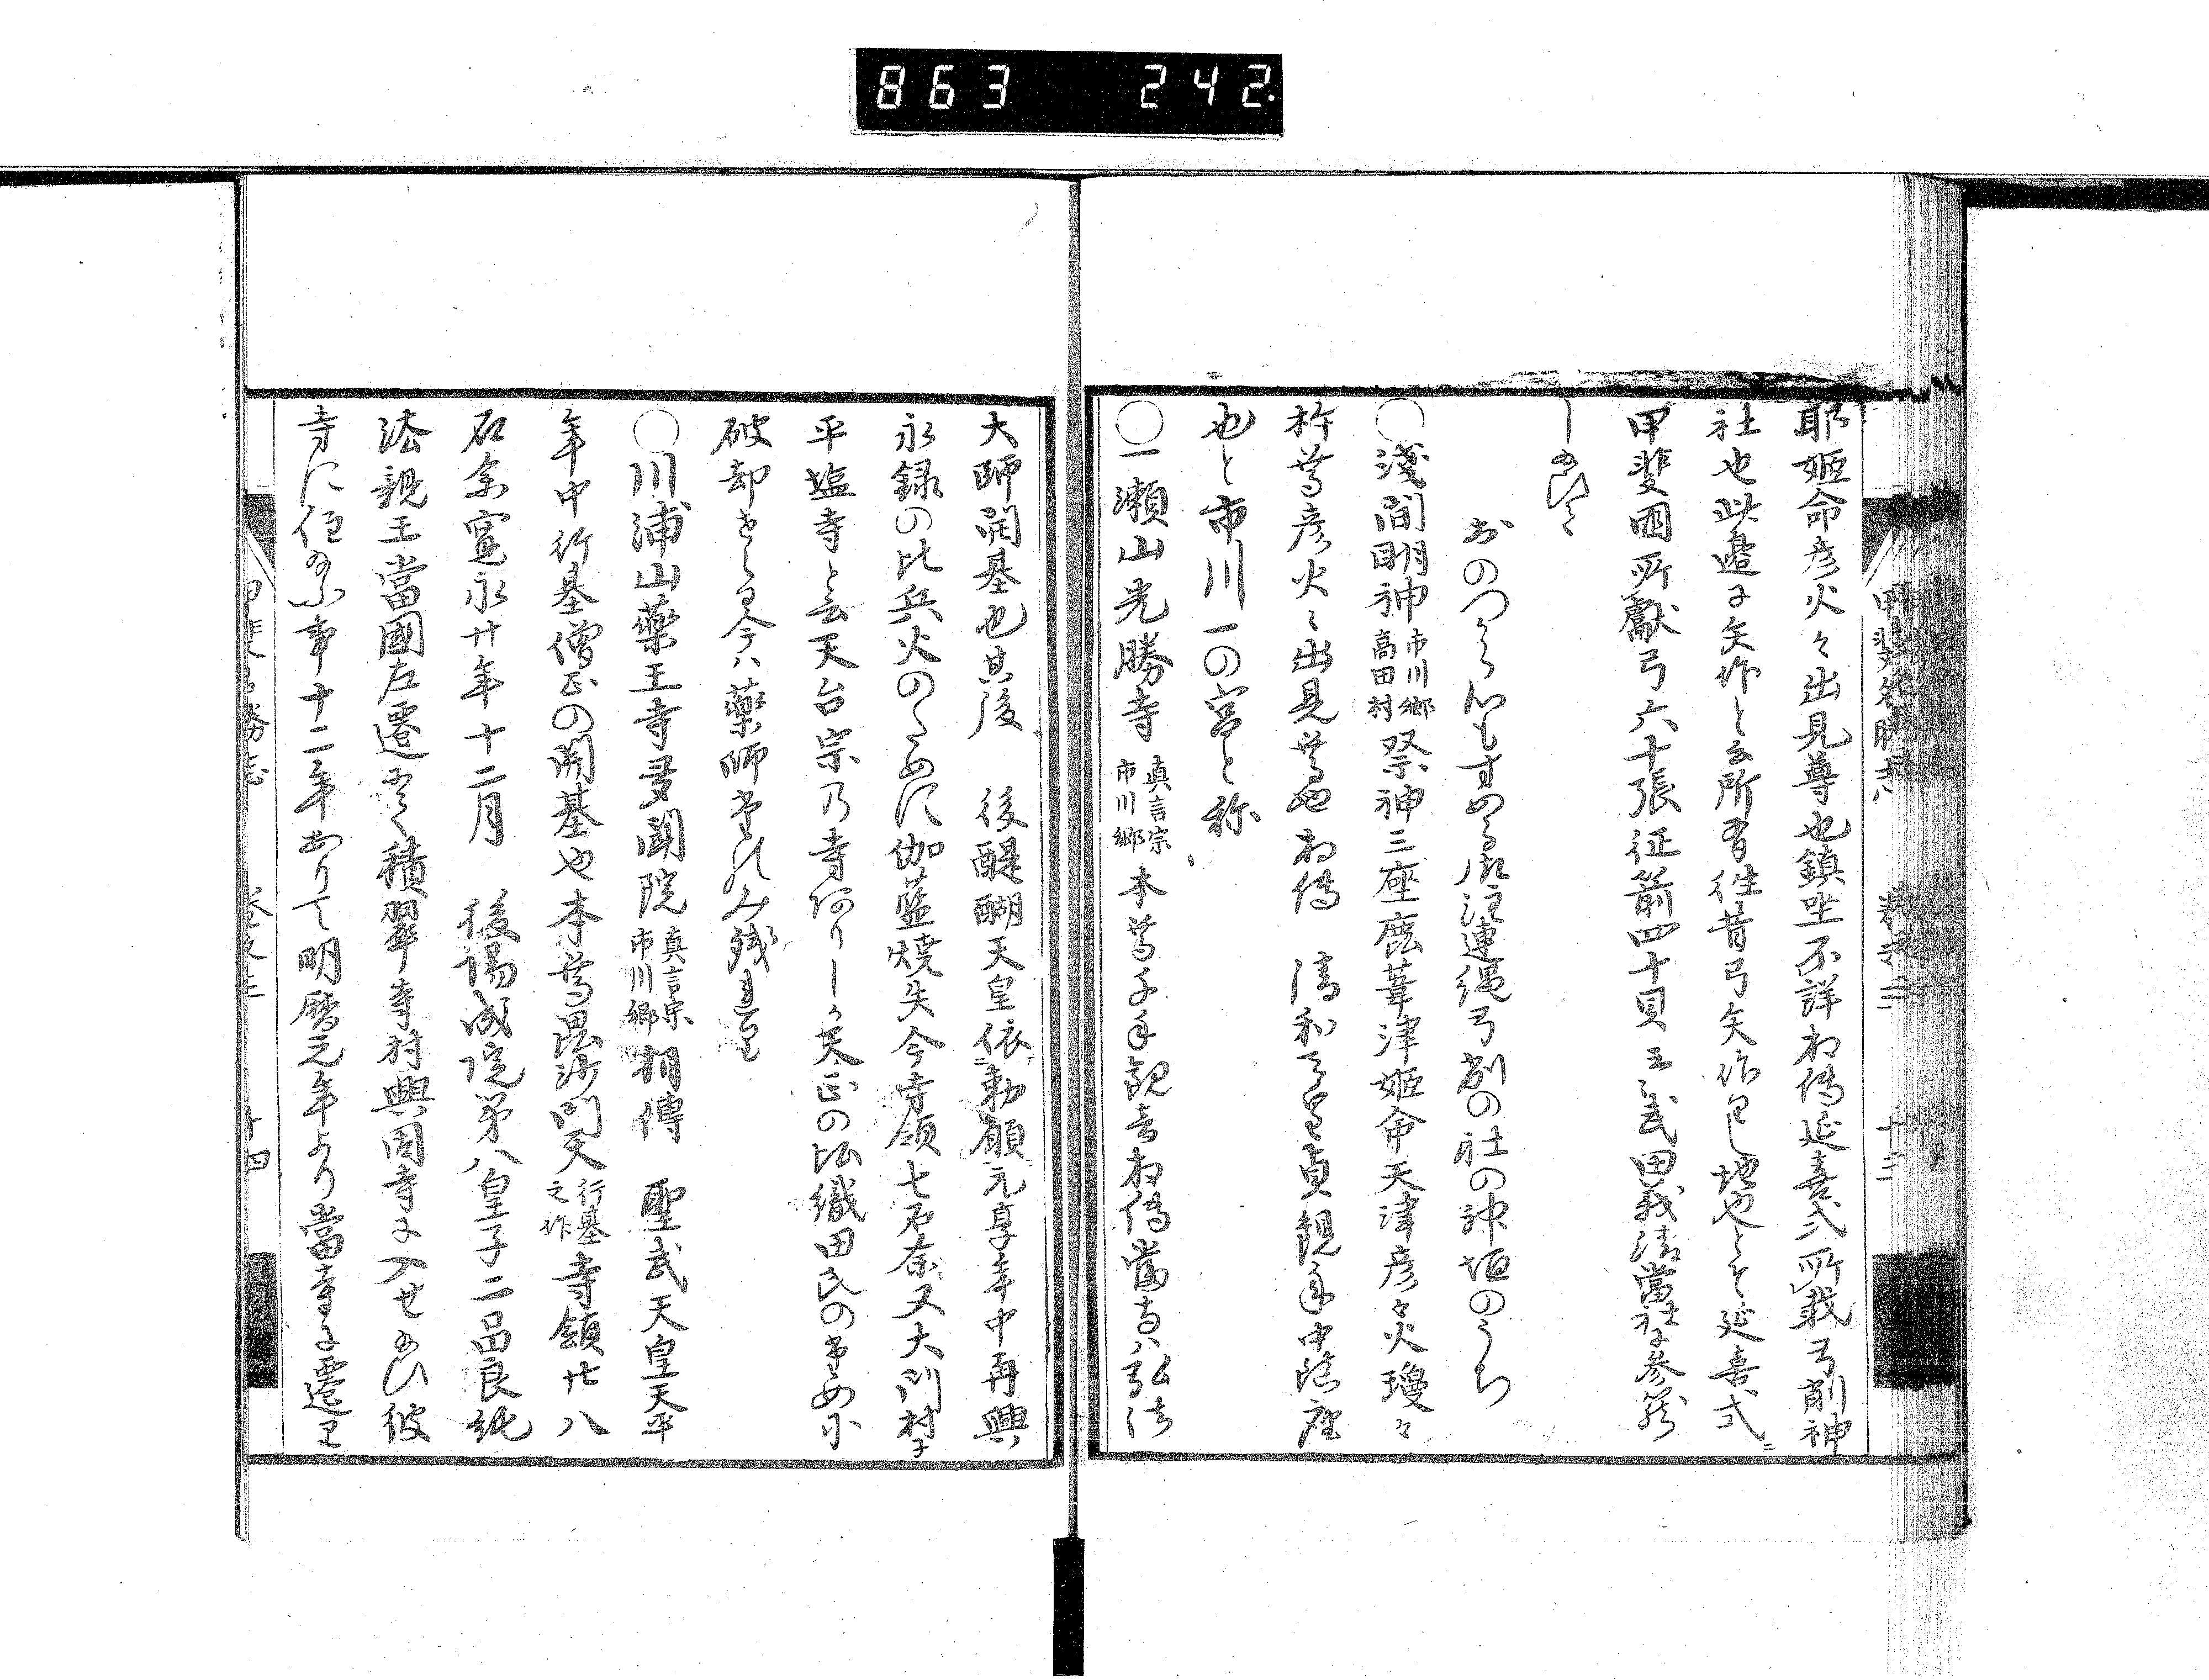 863 242
耶姫命彦火々出見尊也鎮坐不詳相傳延喜式所載弓削神
社也此邉に矢作と云所有徃昔弓矢作りし地也とそ延喜式ニ
甲斐国所獻弓六十張征箭四十具云云武田義清當社に参籠
し給ひて
おのつから心もすめる御注連縄弓削の社の神垣のうち
○淺間明神 市川郷高田村 祭神三座鹿葦津姫命天津彦々火瓊々
杵尊彦火々出見尊也相傳 清和天皇貞観年中鎮座
也と市川一の宮と称
○一瀬山光勝寺 真言宗市川郷 本尊千手観音相傳當寺ハ弘法
大師開基也其後 後醍醐天皇依勅願元享年中再興
永録の比兵火のために伽藍焼失今寺領七石余又大門村に
平塩寺と云天台宗乃寺ありしか天正の比織田氏のために
破却せらる今ハ薬師堂のみ残れり
○川浦山薬王寺多聞院 真言宗市川郷 相傳 聖武天皇天平
年中行基僧正の開基也本尊毘沙門天 行基之作 寺領廿八
石余寛永廿年十二月 後陽成院第八皇子二品良純
法親王當國左遷まし〱積翠寺村興因寺に入せ給ひ彼
寺に住給ふ事十二年ありて明暦元年より當寺に遷り
甲斐名勝志 巻之三 十四